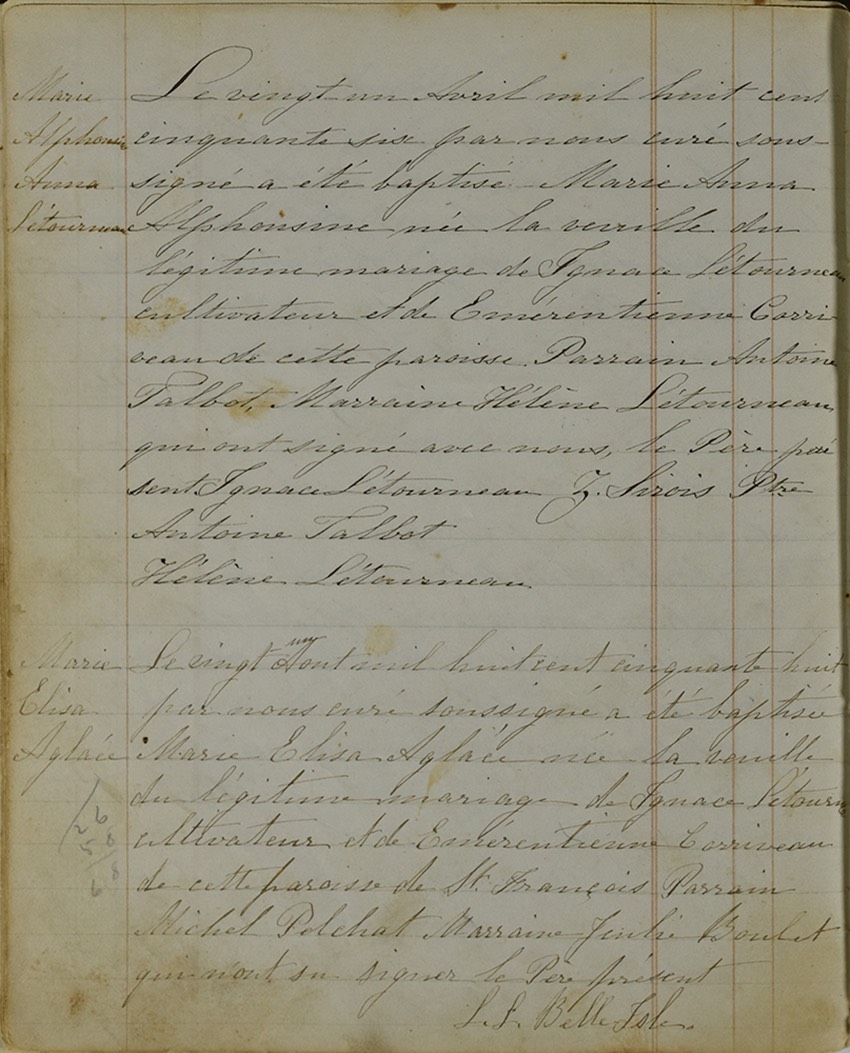 Marie
Alphonsine
Anna
Létourneau
Le vingt un Avril mil huit cent
cinquante six par nous curé sous-
signé a été baptisé Marie Anna
Alphonsine née la veuille du
légitime mariage de Ignace Létourneau
cultivateur et de Emérentienne Corri-
veau de cette paroisse. Parrain Antoine
Talbot, Marraine Hélène Létourneau,
qui ont signé avec nous, le Père pré
sent Ignace Létourneau Z. Sirois Ptre
Antoine Talbot
Hélène Létourneau
Marie
Elisa
Aglaée
Le vingt Aout mil huit cent cinquante huit
par nous curé soussigné a été baptisée
Marie Elisa Aglaée née la veuille
du légitime mariage de Ignace Létourneau
cultivateur et de Emerentienne Corriveau
de cette paroisse de St. François Parrain
Michel Pelchat Marraine Julie Boulet
qui n'ont su signer le Père présent
L. L. Belle Isle.